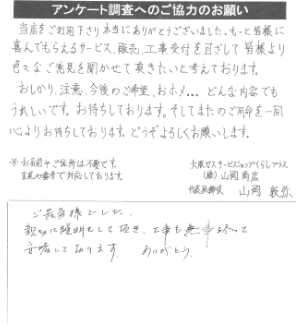 アンケート調査へのご協力のお願い
当店をご利用下さり本当にありがとうございました。もっと皆様に
喜んでもらえるサービス、販売、工事受付を目ざして皆様より
色々なご意見を聞かせて頂きたいと考えております。
おしかり、注意、今後のご希望、おホメ… どんな内容でも
うれしいです。お待ちしております。そしてまたのご用命を一同
心よりお待ちしております。どうぞよろしくお願いします。
※お名前やご住所は不要です。
番号で対応しております。
大阪ガスサービスショップくらしプラス
(株)山岡商店
代表取締役 山岡
ご苦労様でした。
親切に説明をして頂き、工事も無事終って
安心して おります。 ありがとう。